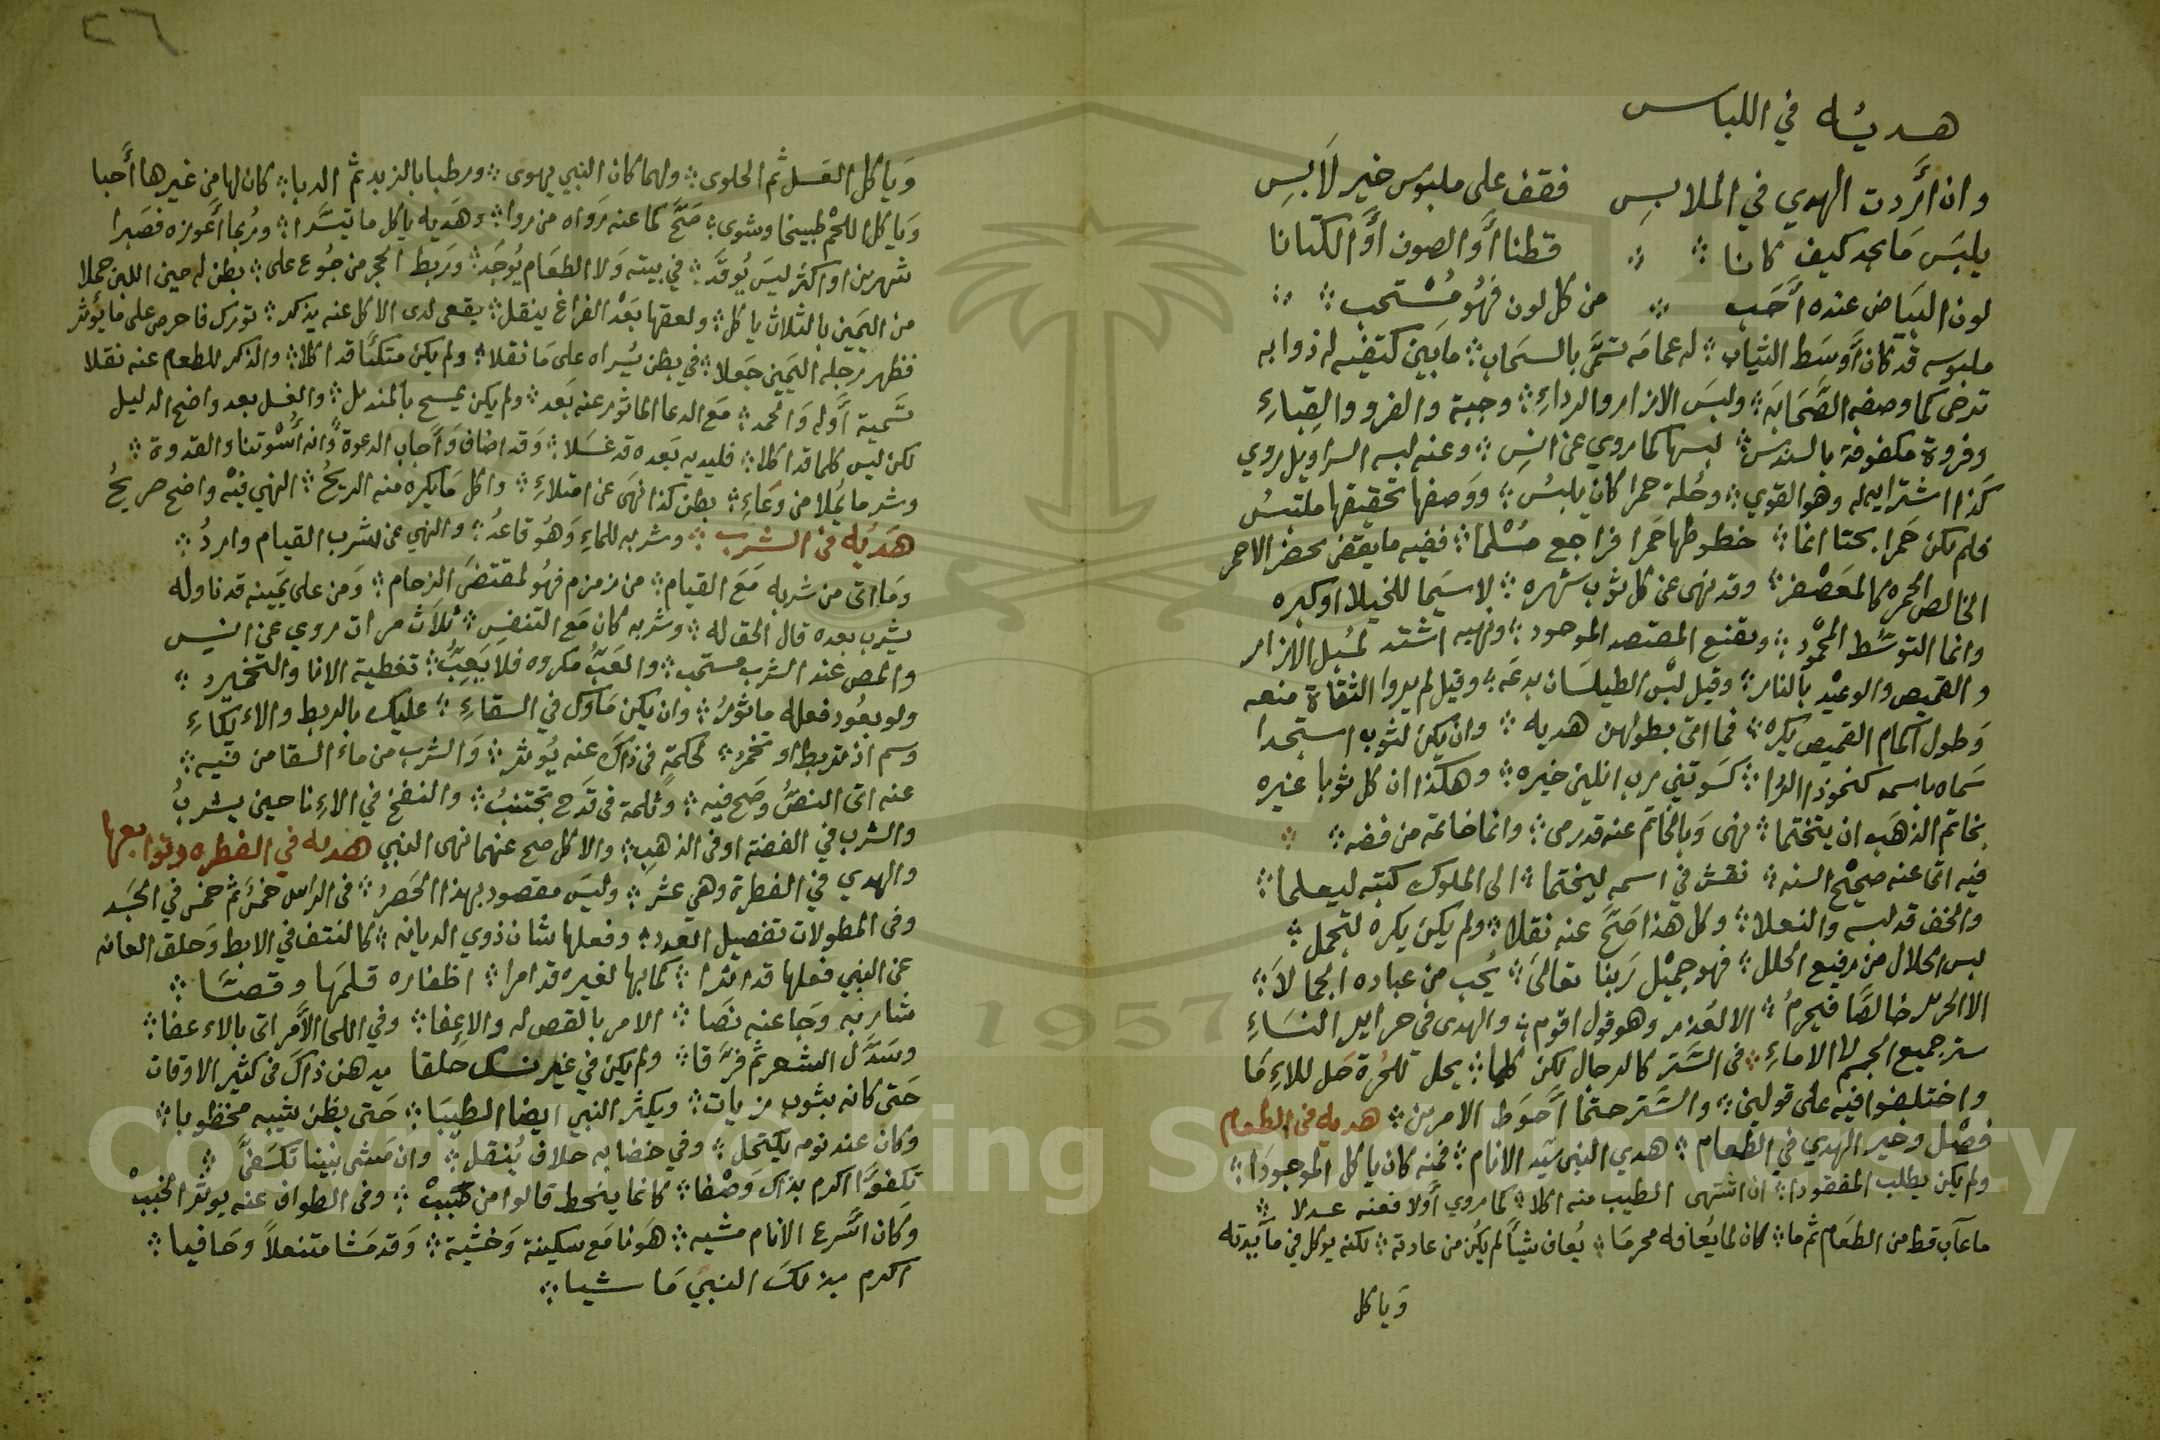 هديُه في اللباس
وان أَردت الهدي في الملابسِ فقف على ملبوس خير لَابسِ
يلبسَ مَا يجد كيف كانا ؞ ؞ قطنا أَو الصوف أَو الكتانا
لون البيَاض عنده أَحَب ؞ من كل لون فهُو مُسْتحب ؞ ؞
ملبوسه قد كان أَوسَط الثياب ؞ له عمامَه تسمَّى بالسحَاب ؞ مَا بَين كتفيه له ذوابه
ترخى كما وصفه الصَّحَابَه ؞ ولبسَ الازار والرداءِ ؞ وجبة والفرو والقِباءِ
وفروة مكفوفة بالسندس ؞ لبسها كما روي عن انسِ ؞ وعنه لبسه السراويل روي
كذا اشترايه له وهو القوي ؞ وحُلة حمرا كان يلبسُ ؞ ووَصفها تحقيقها ملتبسُ
فلم يكن حَمرا بحتا انما ؞ خطوطها حَمرا فراجع مسْلما ؞ ففيه ما يقضى بحضر الاحمر
الخالص الحمره كالمعَصْفر ؞ وقد نهى عن كل ثوب شهره ؞ لا سيَما للخيلا او كبره
وانما التوسُّط المحْمود ؞ ويقنع المقتصد الموجود ؞ ونهيه اشتد لمُسبل الازار
و القميص والوعيْد بالنار ؞ وقيل لبْس الطيلسَان بدعَه ؞ وقيل لم يروا الثقاة منعه
وَطول اكمام القميص يكره ؞ فما اتى بطولهن هديه ؞ وان يكن لثوب استجدا
سَماه باسمه كنحو ذا الردا ؞ كسَوتني رب انلين خيره ؞ وهكذا ان كل ثوبا غيره
بخاتم الذهَب ان يتختما ؞ نهى وَبالخاتم عنه قد رمى ؞ وانما خاتمه من فضه ؞ ؞
فيه اتى عنه صحيْح السنه ؞ نقش في اسمه ليختما ؞ الى الملوك كتبه ليعلما ؞
والخف قد لبسه والنعلا ؞ وكل هذا صَحَّ عنه نقلا ؞ ولم يكن يكره لتجمل ؞
لبس الحلال من رفيع الحلل ؞ فهو جميْل رَبنا تعالىَ ؞ يُحب من عباده الجمالاَ ؞
الا الحرير خالصًا فيحرمُ ؞ الا لعُذر وهو قول اقوم ؞ والهدى في حراير النسَاءِ
ستر جميع الجسم لا الاماءِ ؞ في السَّتر كالرجال لكن كلما ؞ يحل للحُرة حَل للاءِمَا
واختلفوا فيه على قولين ؞ والسَّتر حتما أَحوَط الامرين ؞ هديه في الطعام
فصْل وخير الهدي في الطعام ؞ هدي النبي سَيّد الانام ؞ فمنه كان ياكل الموجودَا ؞
ولم يكن يطلب المفقودا ؞ ان اشتهى الطيب منه اكلا ؞ كما روي أَولا فعنه عدلا ؞
ما عآب قط من الطعَام ثم ما ؞ كان لما يُعافه محرمَا ؞ يُعاف شيأً لم يكُن من عادته ؞ لكنه يوكل في مآيدته
وَياكل
وَياكل العَسل ثم الحلوى ؞ ولهما كان النبي يهوى ؞ ورطبا بالزبد ثم الدبا ؞ كان لها من غيرها أَحبا
وَياكل اللحْم طبيخا وشوى ؞ صَحَّ كما عنه رَواه من روا ؞ وهَديه ياكل ما تيسَّرا ؞ ورُبما أَعوزه فصَبرا
شهرين او اكثر ليسَ يُوقَد ؞ في بيته وَلا الطعَام يُوجَد ؞ وَربط الحجر من جُوع على ؞ بطن له حين اللبن حملا
من اليمَين بالثلاث ياكل ؞ ولعقها بَعْد الفراغ ينقل ؞ يقعى لدى الاكل عنه يذكر ؞ تورك فاحرص على ما يؤثر
فظهر رجله اليمَين جَعلا ؞ في بطن يُسراه على مَا نقلا ؞ ولم يكن متكئًا قد اكلا ؞ والذكر للطعام عنه نقلا
تسَمية أَوله وَالحمد ؞ مَع الدعا الماثور عنه بَعد ؞ ولم يكن يمسح بالمنديل ؞ والغسل بعد واضح الدليل
لكن ليس كلما قد اكلا ؞ فليديه بَعده قد غسَلا ؞ وَقد اضاف وَأَجاب الدعوة ؞ وَانه أُسْوتنا والقدوة ؞
وشر ما يُملا من وعَاءِ ؞ بطن كذا نهَى عن امتلاءِ ؞ واكل مَا يكره منه الريحُ ؞ النهي فيْه واضح صريحُ
هَديُه في الشرب ؞ وشربه للماءِ وَهُو قاعدُ ؞ والنهي عن شرب القيام واردُ ؞
ومَا اتى من شربه مَعَ القيام ؞ من زمزم فهُو لمقتضىَ الزحام ؞ وَمن على يمَينه قد ناوله
يشرب بعده قال الحق له ؞ وشربه كان مَع التنفسِ ؞ ثلاَث مرات روي عن انسِ
والمص عند الشرب مستحب ؞ والعَبُّ مكروه فلا يَعِبُّ ؞ تغطية الانا والتخمير ؞
ولو بعُود فعله ماثورُ ؞ وان يكن مَاؤك في السقاءِ ؞ عليك بالربط والاءيكاءِ
وسم اذ تربط او تخمر ؞ لحكمةٍ في ذاكَ عنه يُوثر ؞ وَالشرب من ماء السقا من فيه ؞
عنه اتى النصُّ وصَح فيه ؞ وثلمة في قدَح تجتنبُ ؞ والنفخ في الاءِنا حين يشربُ
والشرب في الفضة او في الذهبِ ؞ والاكل صح عنهما نهى النبي هديه في الفطره وتوابعها
والهدي في الفطرة وهي عشر ؞ وليسَ مقصود بهذا الحَصرُ ؞ في الراس خمسُ ثم خمس في الجسَد
وفي المطولات تفصيل العدد ؞ وفعلها شان ذوي الديانه ؞ كالنتف في الابط وَحلق العانه
عن النبي فعلها قد اثرا ؞ كما بها لغيره قد امرا ؞ اظفاره قلمَها وقصَّا ؞
شاربه وَجا عنه نصَا ؞ الامر بالقص له والاءِعفا ؞ وفي اللحا الأَمر اتى بالاءعفا ؞
وسَدَّل الشعر ثم فرَّقا ؞ ولم يكن في غير نسك حلقا يدهن ذاكَ في كثير الاوقات
حَتى كانه بثوب زيات ؞ ويكثر النبي ايضا الطيبَا ؞ حَتى يظن شيبه مخضوبا ؞
وَكان عند نومه يكتحل ؞ وفي خضابه خلاف يُنقل ؞ وان مَشى بينا تكسَفىَّ ؞
تكفوًا اكرم بذاك وَصْفا ؞ كانما ينحط قالوا من صَبَبْ ؞ وفي الطواف عنه يوثر الخبَبْ
وَكان أَسَرع الانام مشيه ؞ هَونا مَع سكينة وَخشية ؞ وَقد مَشا متنعلاً وَحَافيا ؞
اكرم بذلكَ النبيِّ مَا شيا ؞